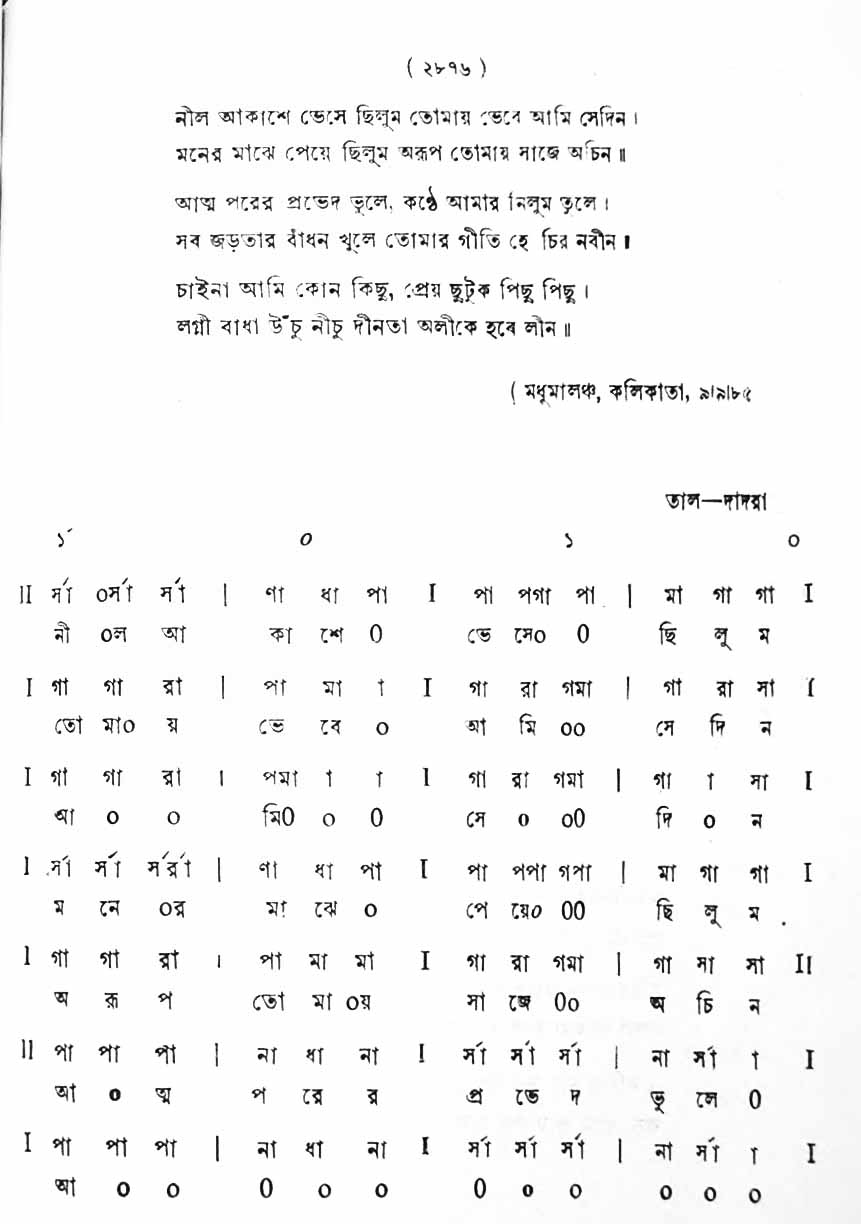 ( ২৮৭৬ )
নীল আকাশে ভেসে ছিলুম তোমায় ভেবে আমি সেদিন ।
মনের মাঝে পেয়ে ছিলুম অরূপ তোমায় সাজে অচিন ॥
আত্ম পরের প্রভেদ ভুলে, কণ্ঠে আমার নিলুম তুলে ।
সব জড়তার বাঁধন খুলে তোমার গীতি হে চির নবীন ।
চাইনা আমি কোন কিছু, প্রেয় ছুটুক পিছু পিছু ।
লগ্নী বাধা উঁচু নীচু দীনতা অলীকে হবে লীন ॥
( মধুমালঞ্চ, কলিকাতা, ৯।৯।৮৫
তাল—দাদরা
১´ ০ ১ ০
II র্সা ০র্সা র্সা | ণা ধা পা I পা পগা পা | মা গা গা I
নী ০ল আ কা শে 0 ভে সে০ 0 ছি লু ম
I গা গা রা | পা মা া I গা রা গমা | গা রা সা I
তো মা০ য় ভে বে ০ আ মি ০০ সে দি ন
I গা গা রা । পমা া া I গা রা গমা | গা া সা I
আ ০ ০ মি0 ০ 0 সে ০ ০0 দি ০ ন
I র্সা র্সা র্সর্রা | ণা ধা পা I পা পপা গপা | মা গা গা I
ম নে ০র মা ঝে ০ পে য়ে০ 00 ছি লু ম .
I গা গা রা । পা মা মা I গা রা গমা | গা সা সা II
অ রূ প তো মা ০য় সা জে 0০ অ চি ন
II পা পা পা | না ধা না I র্সা র্সা র্সা | না র্সা া I
আ ০ ত্ম প রে র প্র ভে দ ভু লে 0
I পা পা পা | না ধা না I র্সা র্সা র্সা | না র্সা া I
আ ০ ০ 0 ০ ০ 0 ০ ০ ০ ০ ০